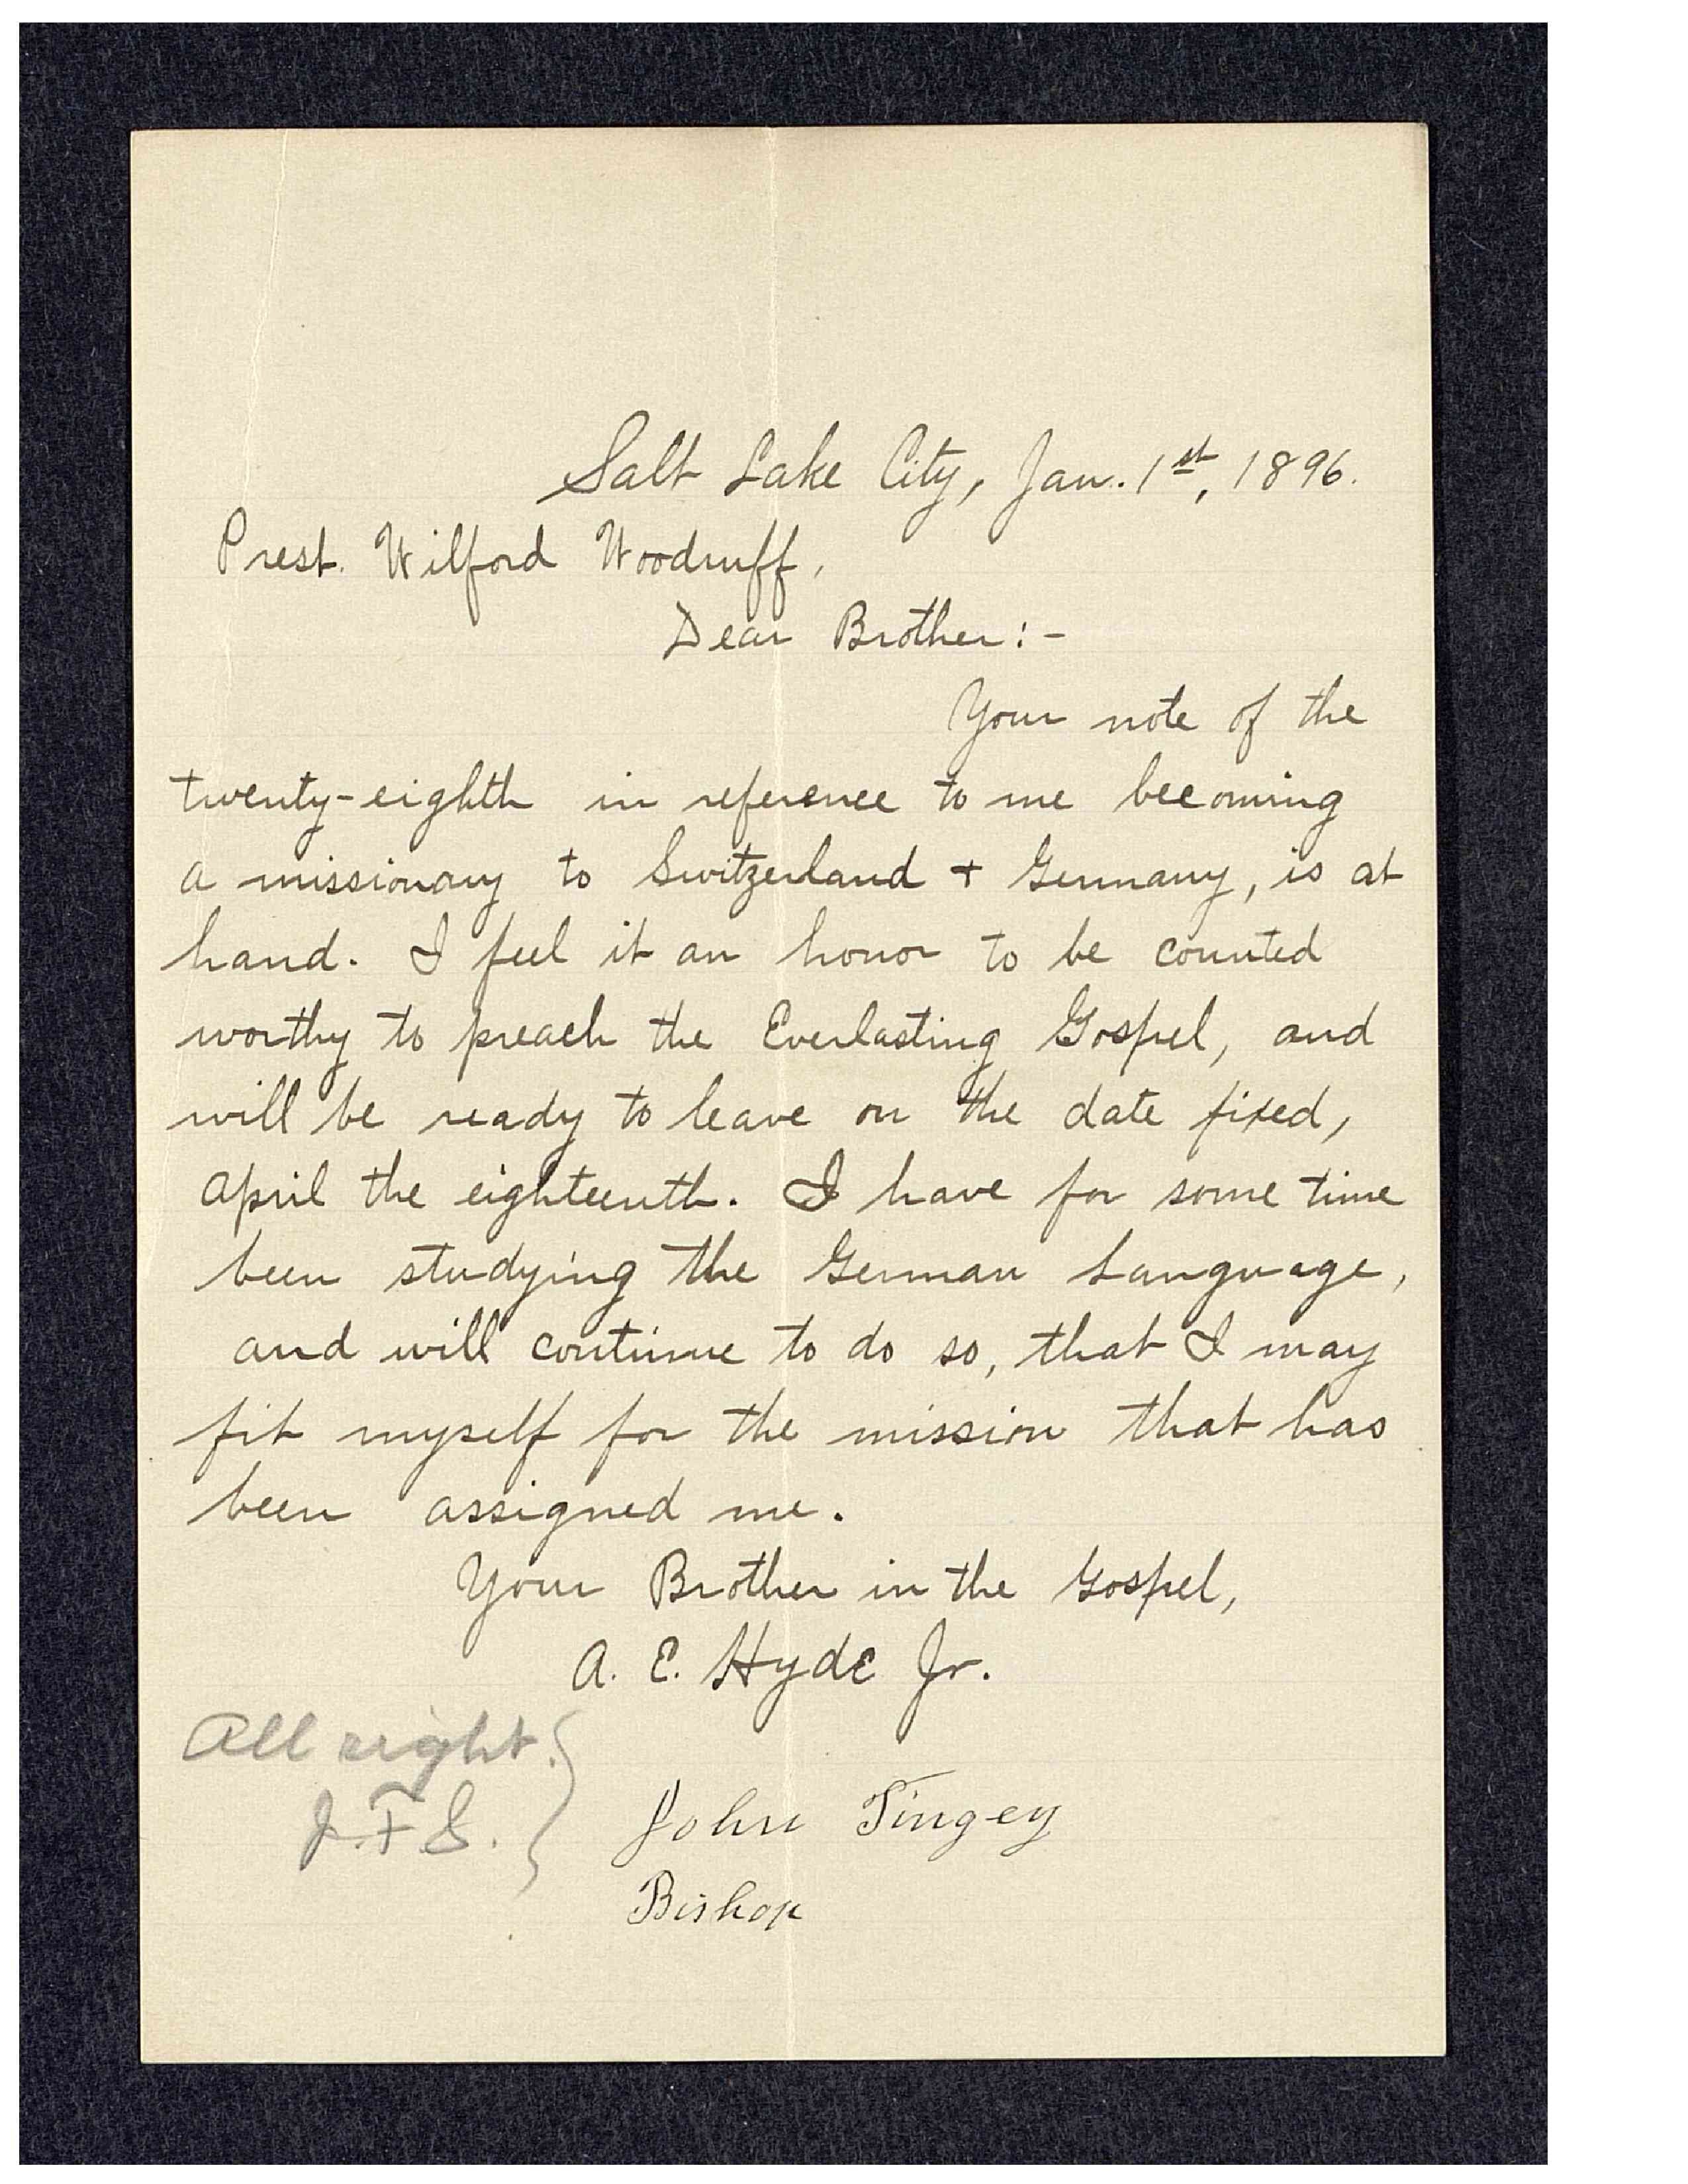 Salt Lake City, Jan. 1st, 1896.
Prest. Wilford Woodruff,
Dear Brother:-
Your note of the
twenty-eighth in reference to me becoming
a missionary to Switzerland + Germany, is at
hand. I feel it an honor to be counted
worthy to preach the Everlasting Gospel, and
will be ready to leave on the date fixed,
April the eighteenth. I have for some time
been studying the German Language,
and will continue to do so, that I may
fit myself for the mission that has
been assigned me.
Your Brother in the Gospel,
A. E. Hyde Jr.
All right.
J. F. S.
John Tingey
Bishop